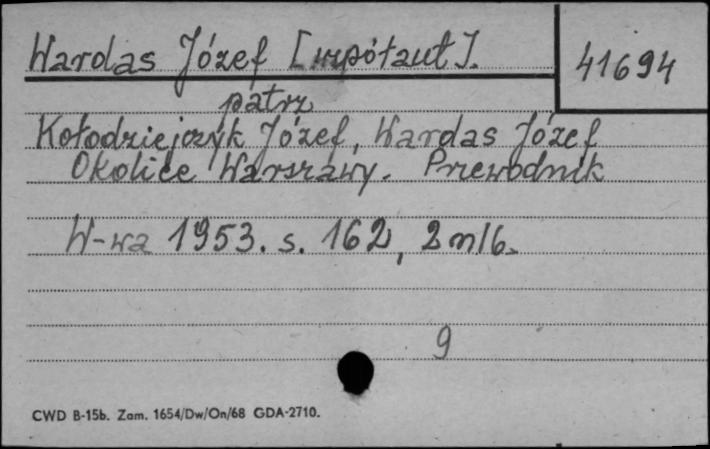 Wardas Józef [współaut].
41694
patrz
Kołodziejczyk Józef, Wardas Józef
Okolice Warszawy. Przewodnik
W-wa 1953. s. 162, 2 nlb.
9
CWD B-15b. Zam. 1654/Dw/On/68 GDA-2710.